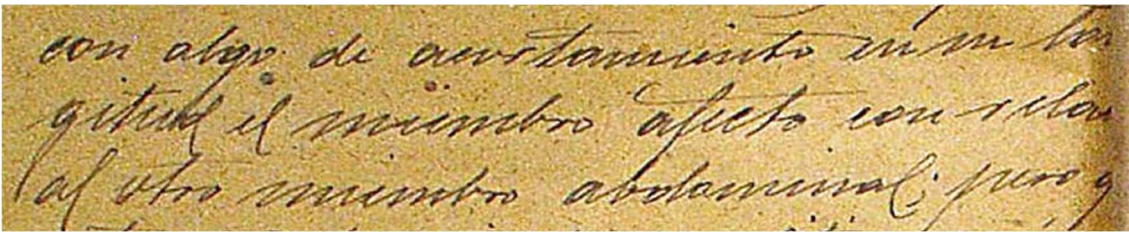 con algo de acortamiento en su lon
gitud el miembro afecto con relac
al otro miembro abdominal; pero q